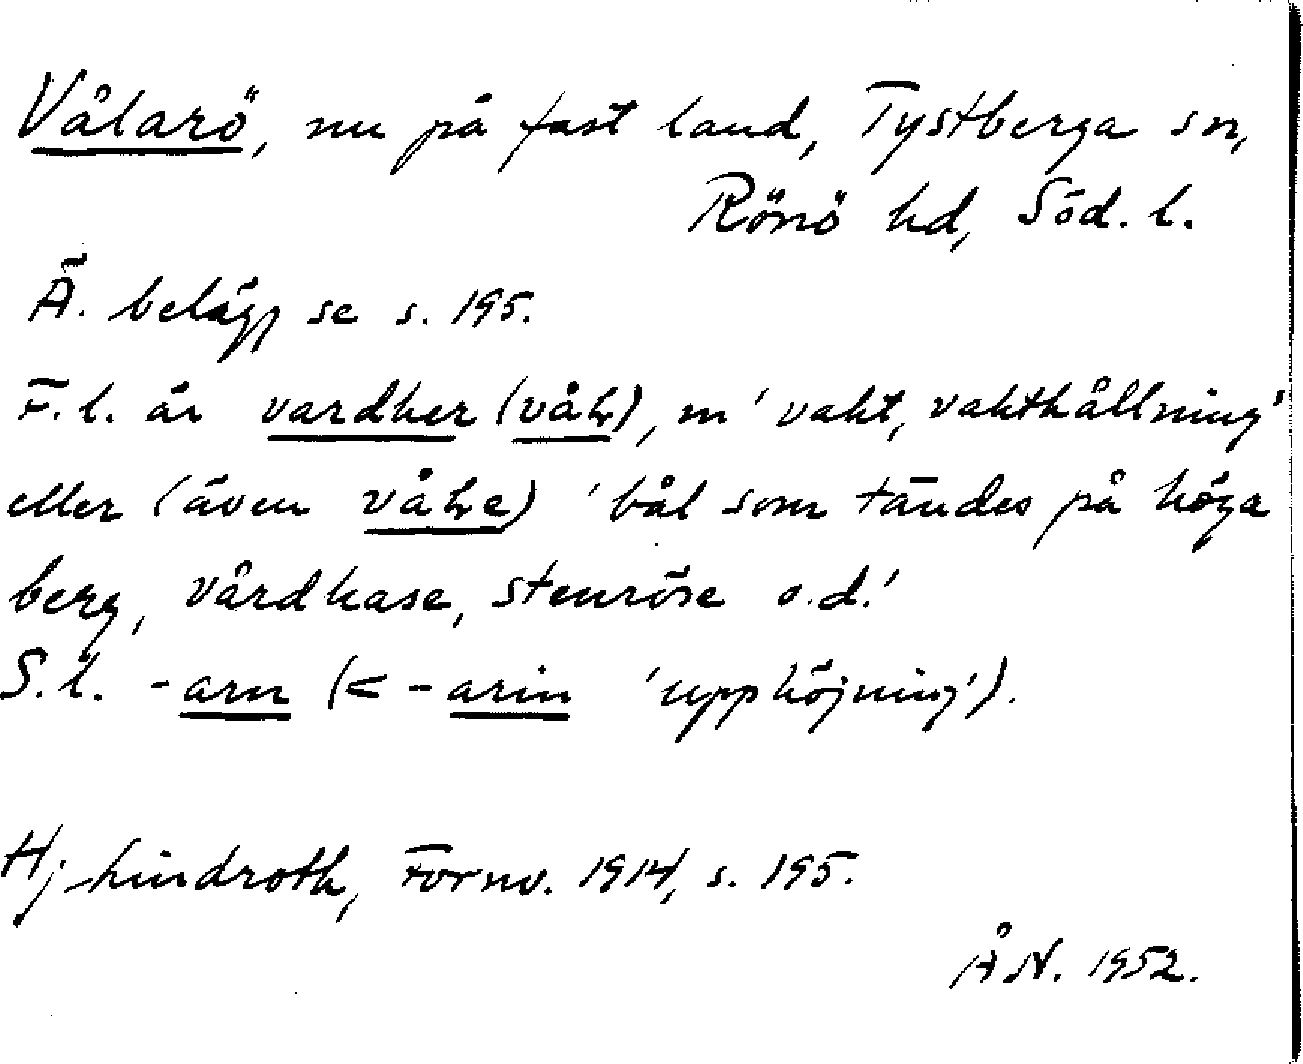 Vålarö, nu på fast land, Tystberga sn,
Rönö hd, Söd. l.
Ä. belägg se s. 195.
F.l. är vardher (våɽ), m 'vakt, vakthållning'
eller (även våɽe) 'bål som tändes på höga
berg, vårdkase, stenröse o.d.'
S.l. -arn (< -arin 'upphöjning').
Hj Lindroth, Fornv. 1914, s. 195.
ÅN. 1952.